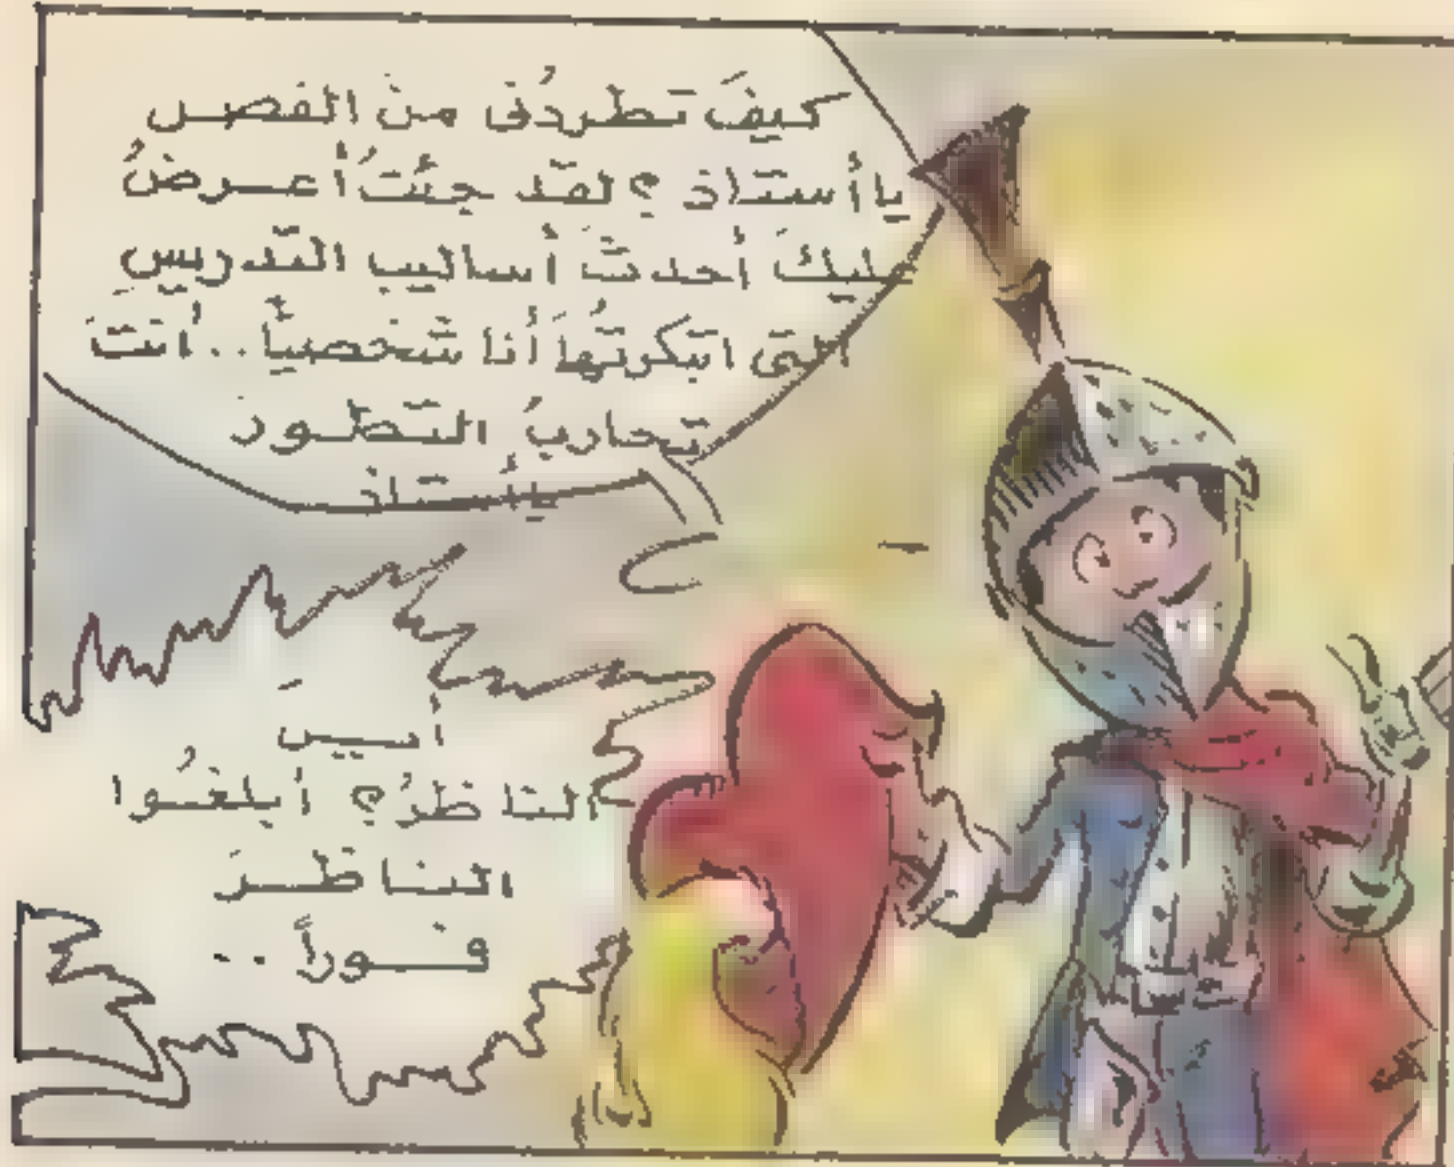 كيفَ تطردُنى منَ الفصل
يا أستاذ ؟ لقد جئتُ أعرضُ
عليكَ أحدثَ أساليب التّدريسِ
التى ابتكرتُها أنا شخصياً .. أنتَ
تحاربُ التطورَ
يا أستاذ
أينَ
الناظرُ؟ أبلغُوا
الناظرَ
فوراً ..